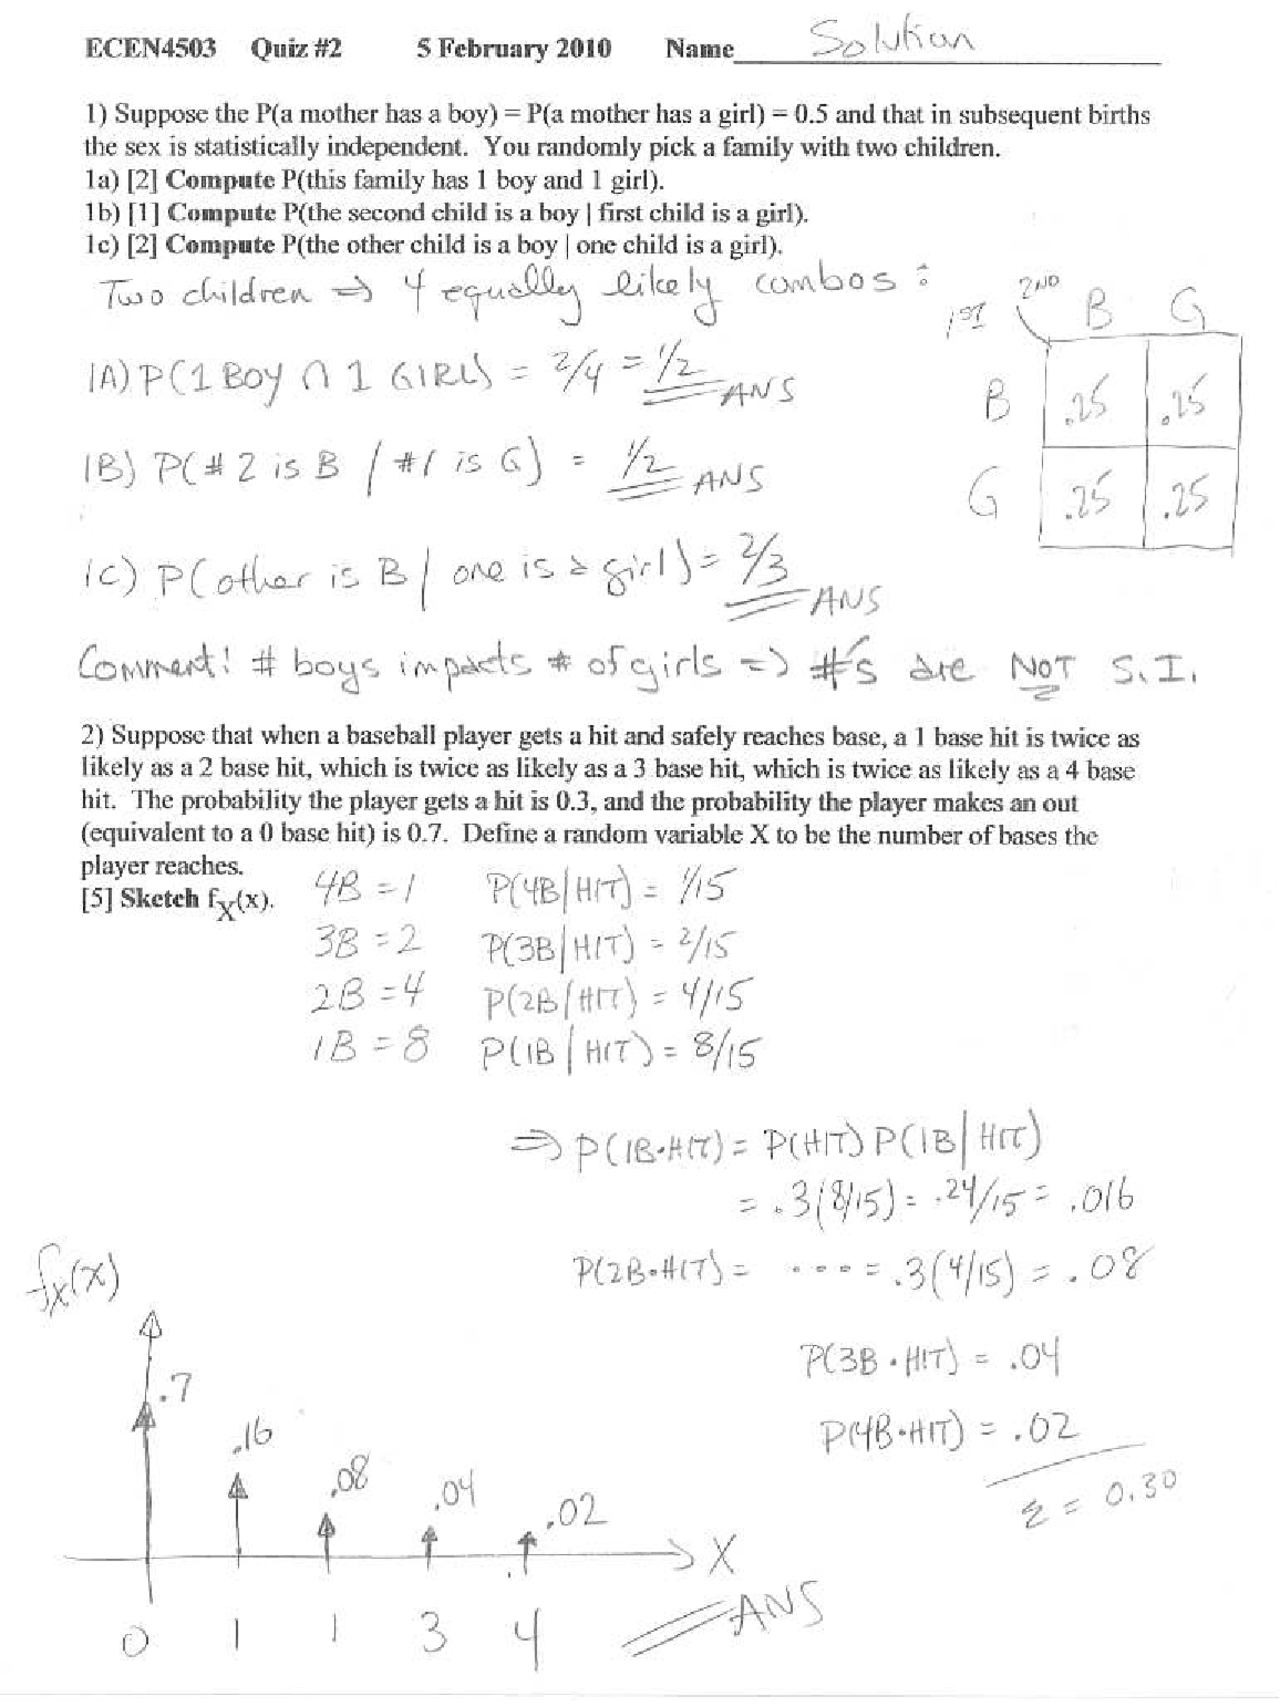 ECEN4503 Quiz #2 5 February 2010 Name Solution
1) Suppose the P(a mother has a boy) = P(a mother has a girl) = 0.5 and that in subsequent births
the sex is statistically independent. You randomly pick a family with two children.
1a) [2] Compute P(this family has 1 boy and 1 girl).
1b) [1] Compute P(the second child is a boy | first child is a girl).
1c) [2] Compute P(the other child is a boy | one child is a girl).
Two children => 4 equally likely combos:
1ST 2ND B G
B .25 .25
G .25 .25
1A) P(1 BOY ∩ 1 GIRL) = 2/4 = 1/2 ANS
1B) P(#2 is B / #1 is G) = 1/2 ANS
1C) P(other is B | one is a girl) = 2/3 ANS
Comment: # boys impacts # of girls => #'s are NOT S.I.
2) Suppose that when a baseball player gets a hit and safely reaches base, a 1 base hit is twice as
likely as a 2 base hit, which is twice as likely as a 3 base hit, which is twice as likely as a 4 base
hit. The probability the player gets a hit is 0.3, and the probability the player makes an out
(equivalent to a 0 base hit) is 0.7. Define a random variable X to be the number of bases the
player reaches.
[5] Sketch fX(x).
4B = 1 P(4B|HIT) = 1/15
3B = 2 P(3B|HIT) = 2/15
2B = 4 P(2B|HIT) = 4/15
1B = 8 P(1B|HIT) = 8/15
=> P(1B•HIT) = P(HIT) P(1B|HIT)
= .3(8/15) = .24/15 = .016
P(2B•HIT) = •••• = .3(4/15) = .08
P(3B•HIT) = .04
P(4B•HIT) = .02
Σ = 0.30
fX(x)
.7
.16
.08
.04
.02
X
0 1 1 3 4
ANS